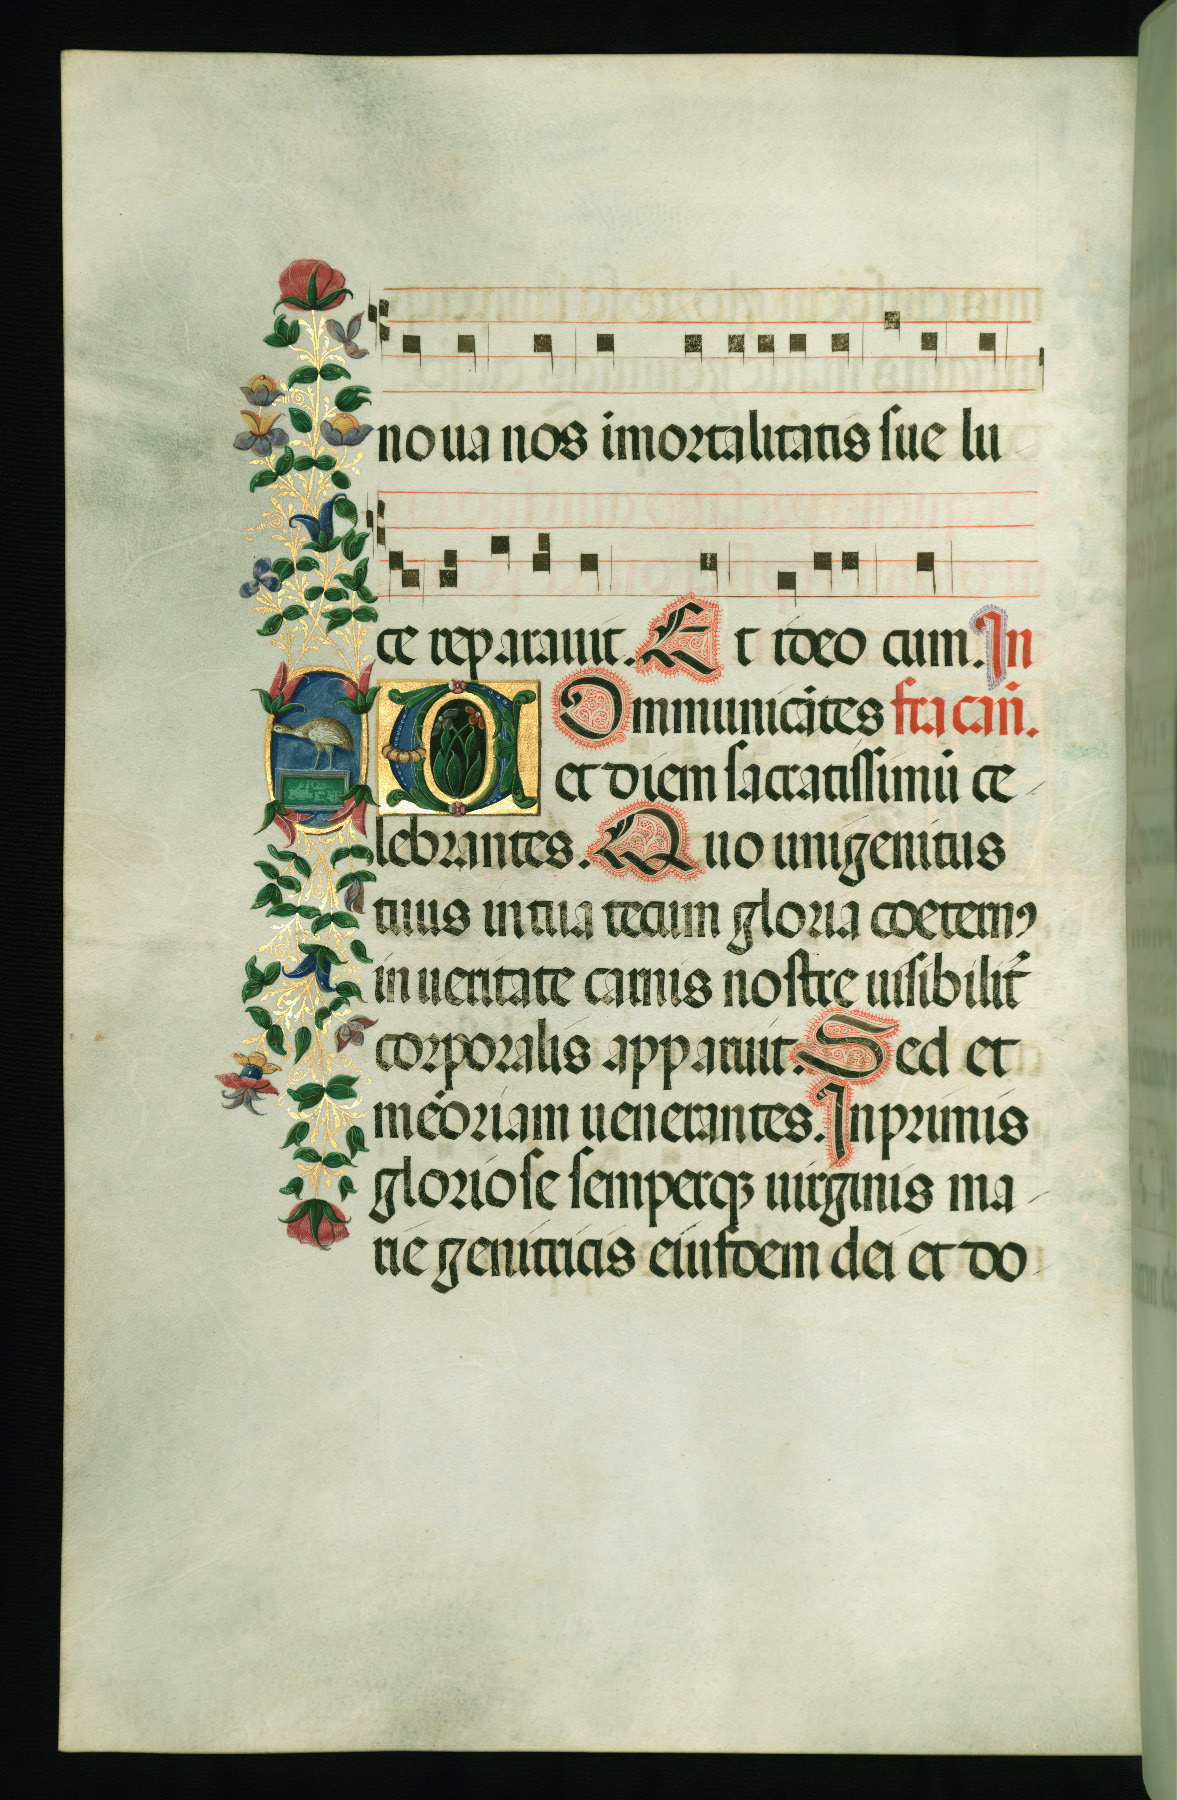 noua nos imortalitatis sue lu
ce reparauit. Et ideo cum. In
Communicātes fra can̄.
et diem sacratissimū ce-
lebrantes. Quo unigenitus
tuus in tua tecum gloria coeternꝰ
in ueritate carnis nostre uisibilit̄
corporalis apparuit. Sed et
mēoriam uenerantes. Inprimis
gloriose semperqꝫ uirginis ma-
rie genitricis eiusdem dei et do-